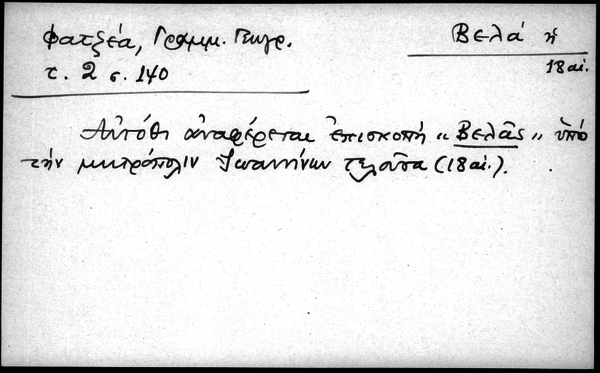 Φατζέα, Γραμμ. Γεωγρ.
τ. 2 σ. 140
Βελά ἡ
18 αἰ.
Αὐτόθι ἀναφέρεται ἐπισκοπή "Βελᾶς" ὑπό
τήν μητρόπολιν Ἰωαννίνων τελοῦσα (18 αἰ.).